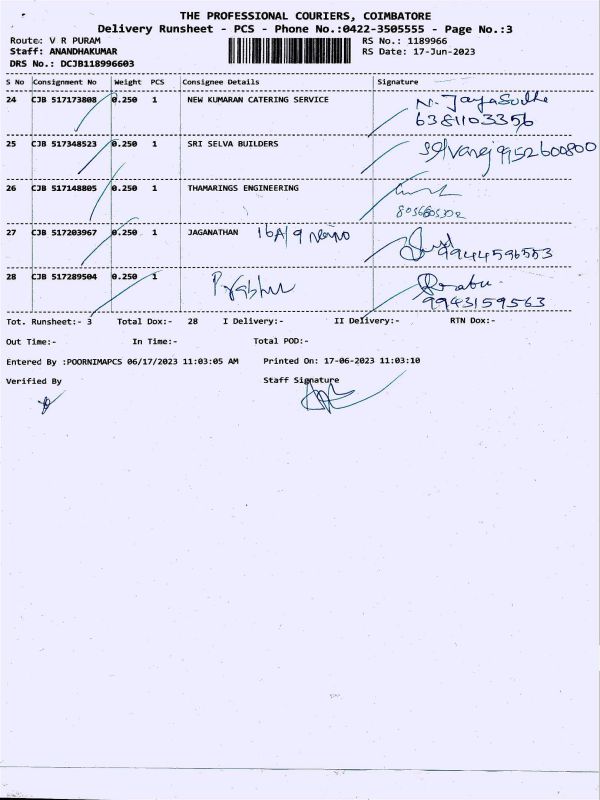 THE PROFESSIONAL COURIERS, COIMBATORE
Delivery Runsheet - PCS - Phone No.:0422-3505555 - Page No.:3
Route: V R PURAM RS No.: 1189966
Staff: ANANDHAKUMAR RS Date: 17-Jun-2023
DRS No.: DCJB118996603
S No Consignment No Weight PCS Consignee Details Signature
24 CJB 517173808 0.250 1 NEW KUMARAN CATERING SERVICE N. JayaSudha
6381103356
25 CJB 517348523 0.250 1 SRI SELVA BUILDERS Selvaraj 9952600800
26 CJB 517148805 0.250 1 THAMARINGS ENGINEERING
27 CJB 517203967 0.250 1 JAGANATHAN 16A/9
9944596553
28 CJB 517289504 0.250 1 Prabhu Prabu
9943159563
Tot. Runsheet:- 3 Total Dox:- 28 I Delivery:- II Delivery:- RTN Dox:-
Out Time:- In Time:- Total POD:-
Entered By :POORNIMAPCS 06/17/2023 11:03:05 AM Printed On: 17-06-2023 11:03:10
Verified By Staff Signature